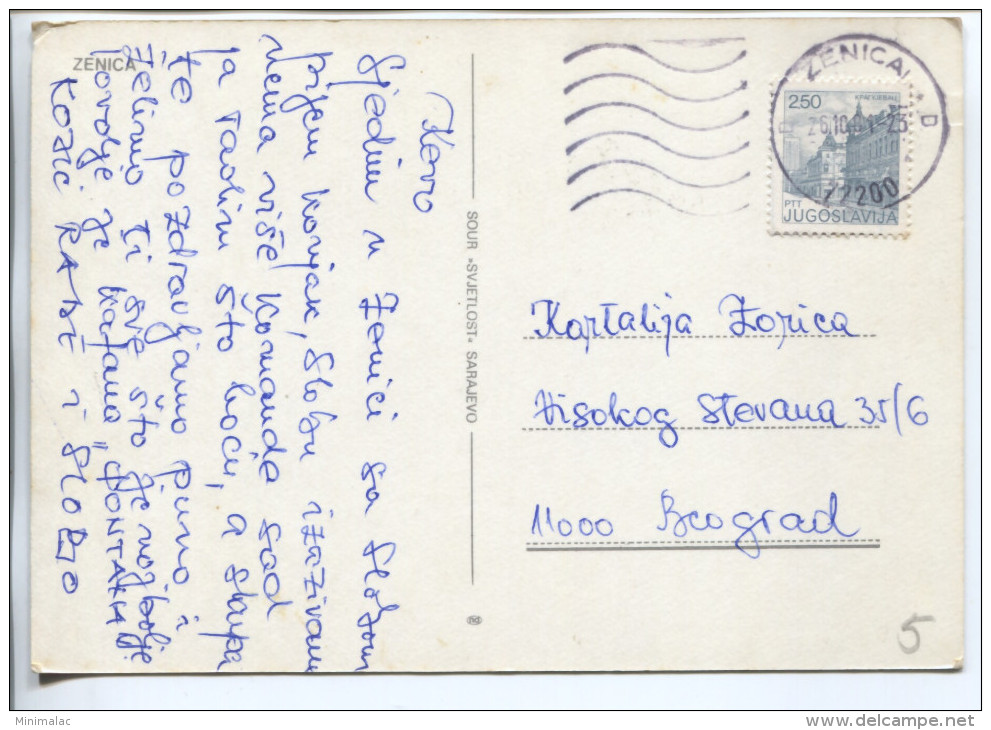 ZENICA
Kevo
Sjedim u Zenici sa Slobom
pijem konjak, Slobu izazivam
nema više komande sad
ja radim što hoću, a skupa
te pozdravljamo puno i
želimo ti sve što je najbolje
ovdje je kafana
KOZIĆ RADE i SLOBO
SOUR »SVJETLOST« SARAJEVO
ZENICA
D D
26.10.81-23
72200
2.50
PTT
JUGOSLAVIJA
Kartalija Zorica
Visokog Stevana 35/6
11000 Beograd
5
Minimalac
delcampe.net